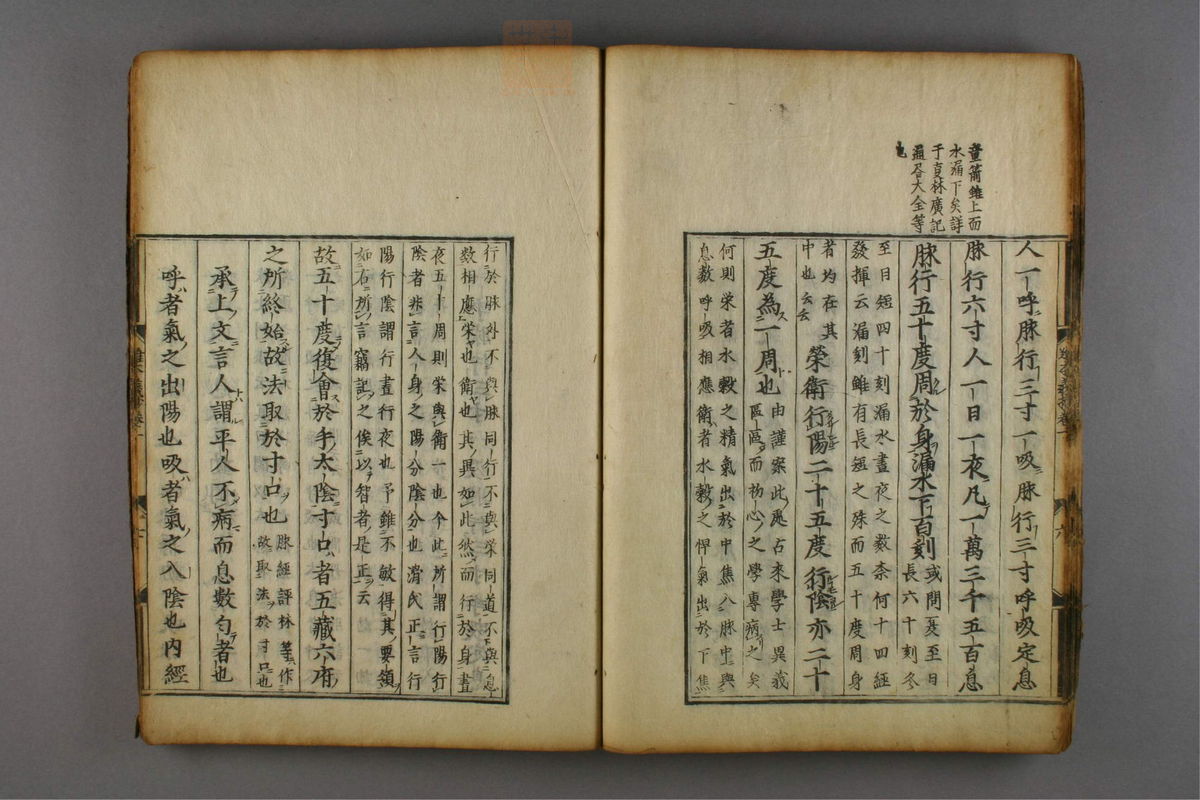 畫箭雖上而
水漏下矣詳
于事林廣記
遵居大全等
也
人一呼脉行三寸一吸脉行三寸呼吸定息
脉行六寸人一日一夜凡一萬三千五百息
脉行五十度周於身漏水下百刻
或問夏至日
長六十刻冬
至日短四十刻漏水晝夜之數柰何十四經
發揮云漏刻雖有長短之殊而五十度周身
者均在其
中也云云
榮衛行陽二十五度行陰亦二十
五度為一周也
由謹案此乃古來學士異義
區區而初心之學專病之矣
何則栄者水穀之精氣出於中焦入脉中與
息數呼吸相應衛者水穀之悍氣出於下焦
行於脉外不與脉同行不與栄同道不與息
數相應栄也衛也其異如此然而行於身晝
夜五十周則栄與衛一也今此所謂行陽行
陰者非言人身之陽分陰分也滑氏正言行
陽行陰謂行晝行夜也予雖不敏得其要領
如右所言竊記之俟以智者是正云
故五十度復會於手太陰寸口者五藏六府
之所終始故法取於寸口也
脉經評林等作
故取法於寸口也
承上文言人謂平人不病而息數勻者也
呼者氣之出陽也吸者氣之入陰也内經
六